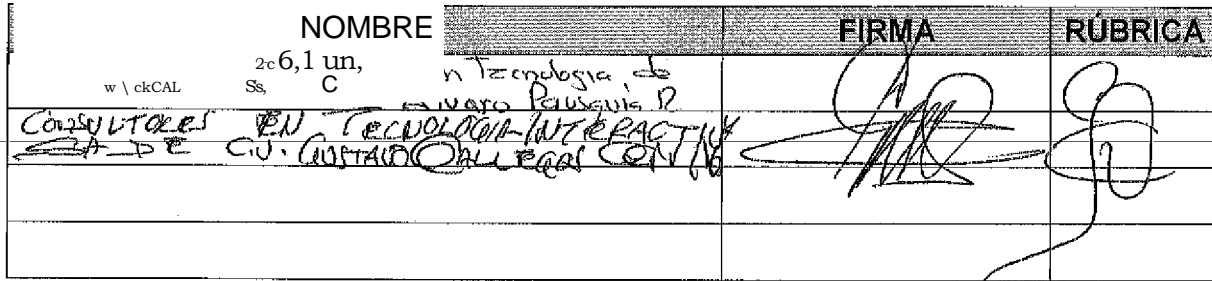 NOMBRE FIRMA RÚBRICA
2c 6,1 un,
w \ ckCAL Ss, C n Tecnologia de
Alvaro
CONSULTORES EN TECNOLOGIA INTERACTIVA
SA DE C.V. GUSTAVO